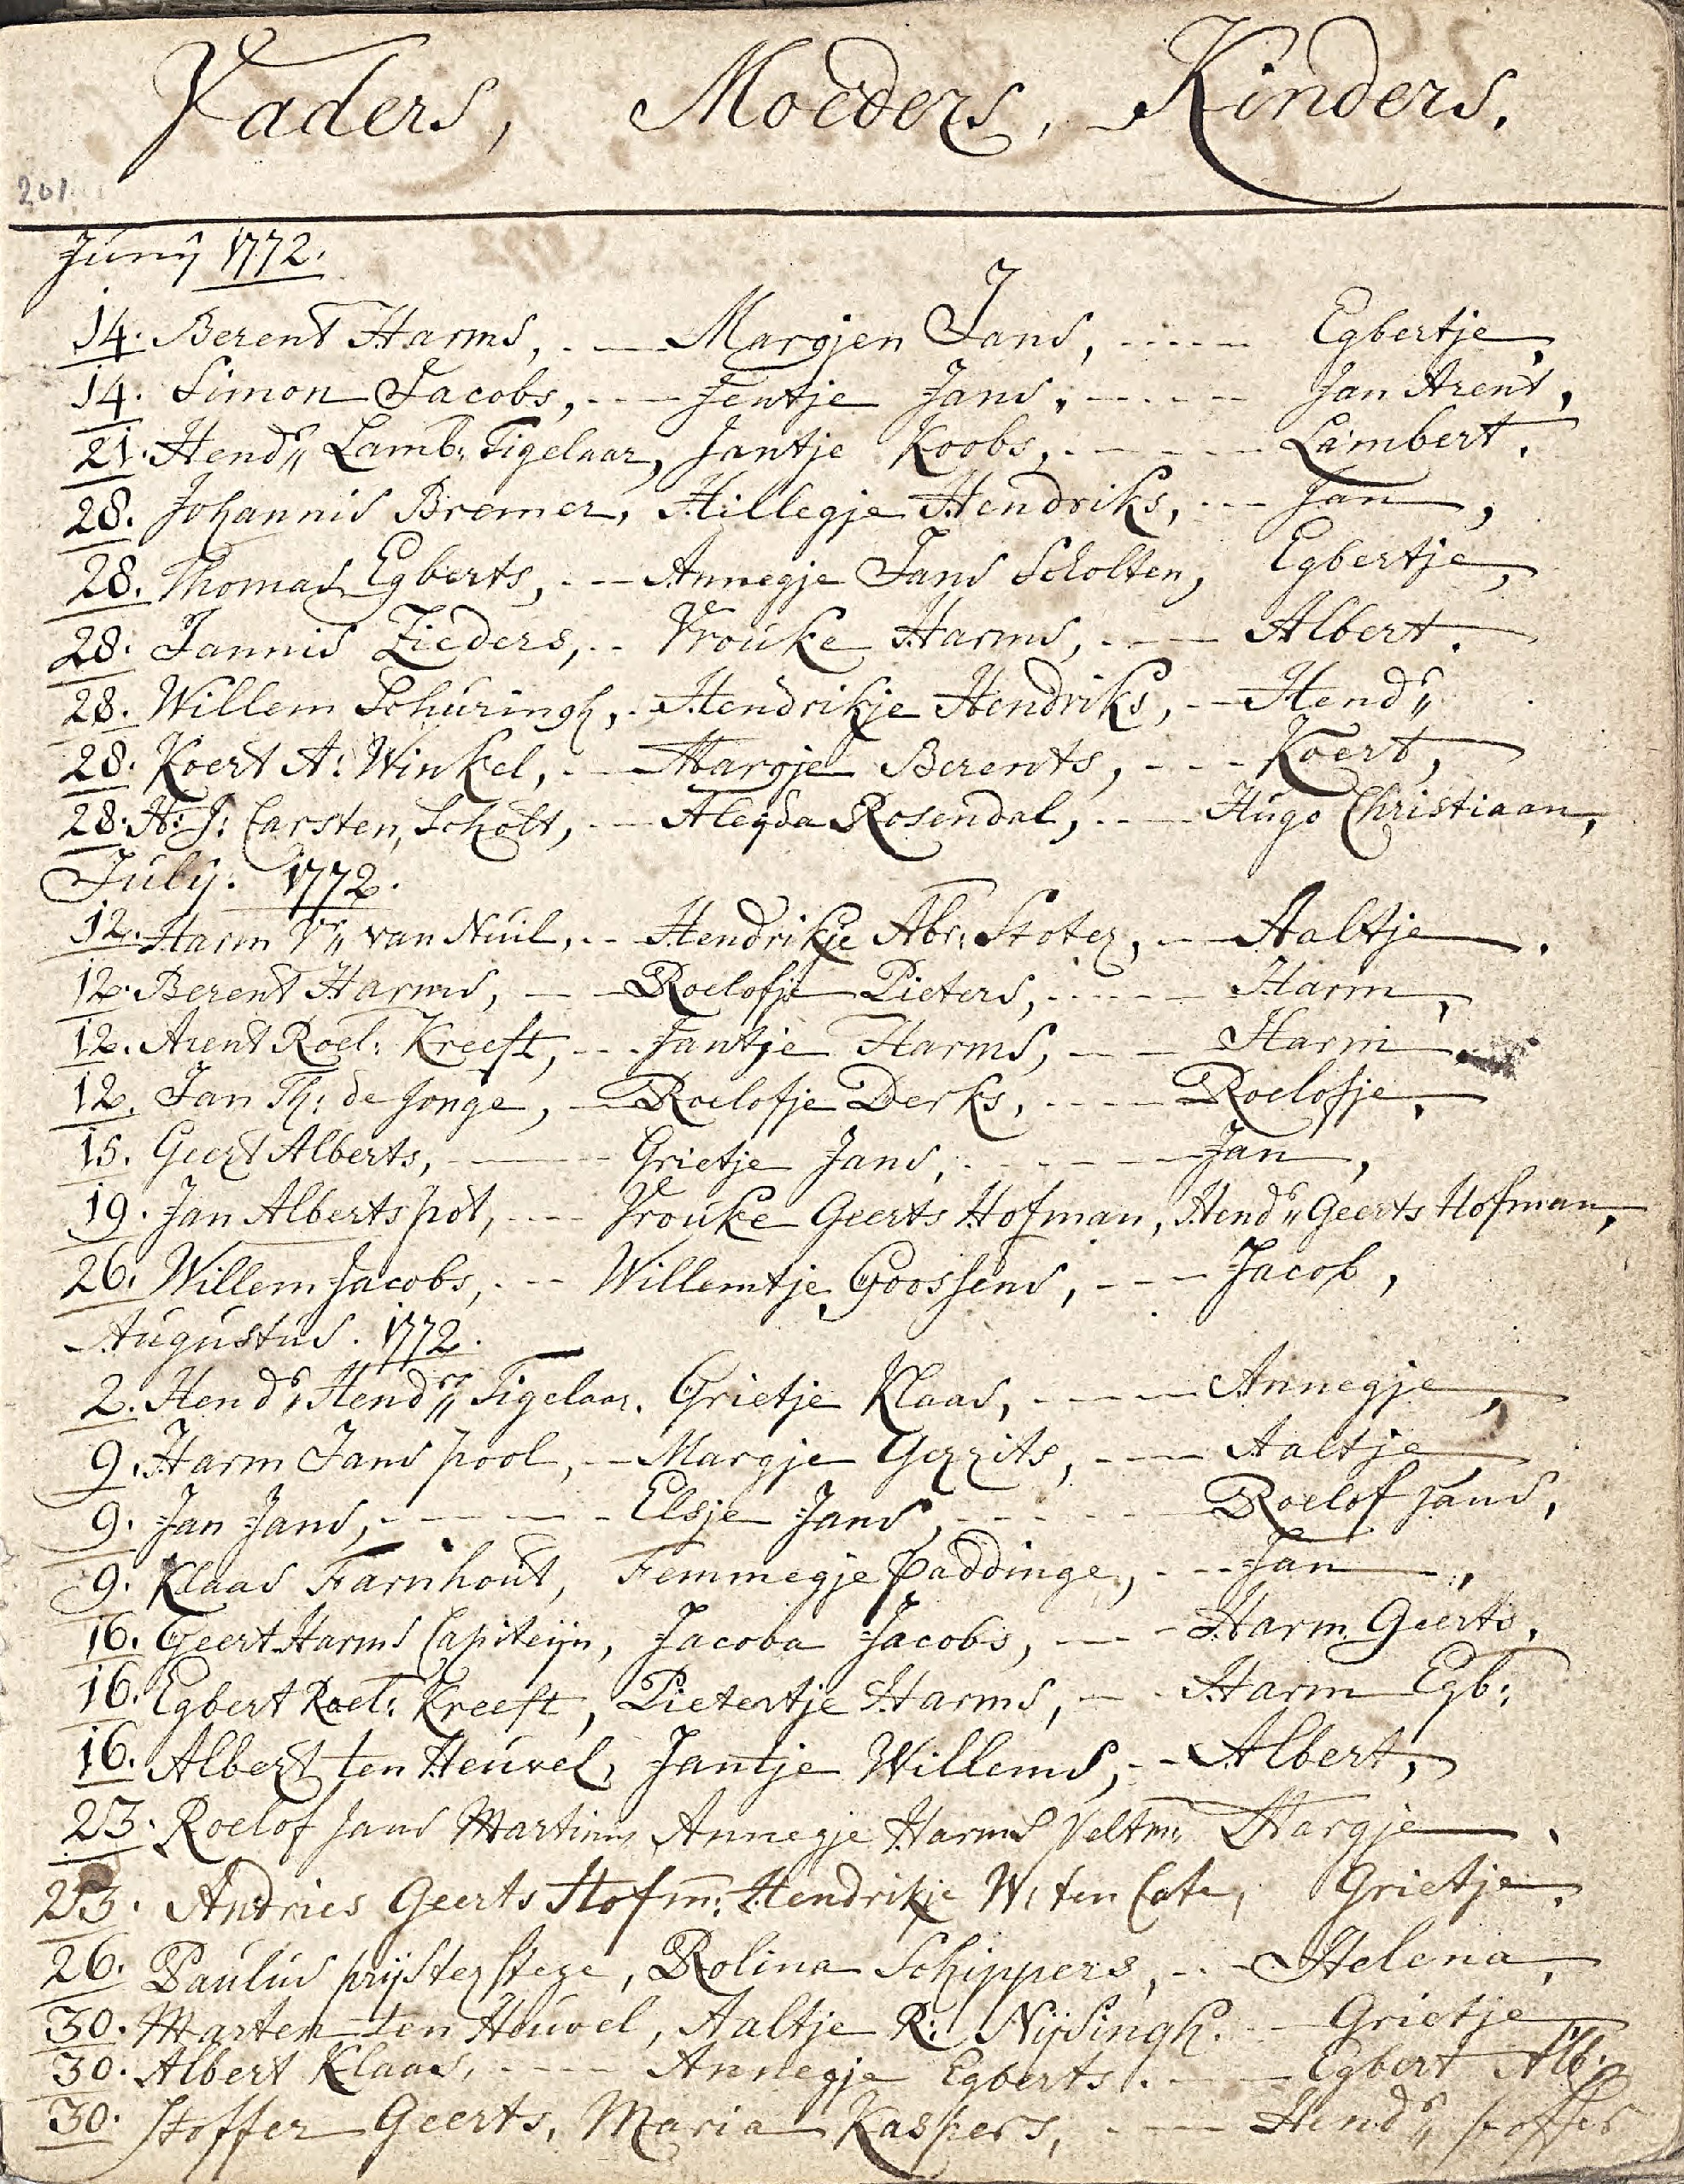 Vaders, Moeders, Kinders.
201.
Junij 1772.
14. Berent Harms, Margjen Jans, Egbertje,
14. Simon Jacobs, Fentje Jans, Jan Arent,
21. Hendr. Lamb: Tigelaar, Jantje Koobs, Lambert.
28. Johannis Bremer, Hillegje Hendriks, Jan,
28. Thomas Egberts, Annegje Jans Scholten, Egbertje,
28. Jannis Zieders, Vrouke Harms, Albert.
28. Willem Schuringh, Hendrikje Hendriks, Hendr.
28. Koert A: Winkel, Margje Berents, Koert,
28. H: J: Carsten, Scholt, Alegda Rosendal, Hugo Christiaan,
July. 1772.
12. Harm Vr. van Nuil, Hendrikje Abr: Stoter, Aaltje.
12. Berent Harms, Roelofje Pieters, Harm,
12. Arent Roel: Kreeft, Jantje Harms, Harm.
12. Jan Th: de Jonge, Roelofje Derks, Roelofje,
15. Geert Alberts, Grietje Jans, Jan,
19. Jan Alberts pot, Vrouke Geerts Hofman, Hendr. Geerts Hofman,
26. Willem Jacobs, Willemtje Goossens, Jacob,
Augustus. 1772.
2. Hendr. Hendr. Tigelaar. Grietje Klaas, Annegje,
9. Harm Jans pool, Margje Gerrits, Aaltje
9. Jan Jans, Elsje Jans, Roelof Jans,
9. Klaas Farnhout, Femmegje paddinge, Jan,
16. Geert Harms Capiteijn, Jacoba Jacobs, Harm Geerts.
16. Egbert Roel: Kreeft, Pietertje Harms, Harm Egb:
16. Albert ten Heuvel, Jantje Willems, Albert,
23. Roelof Jans Martinus Annegje Harms Veltm: Margje,
23. Andries Geerts Hofm: Hendrikje W: ten Cate, Grietje,
26. Paulus prijsterstege, Rolina Schippers, Helena,
30. Marten ten Heuvel, Aaltje R: Nijsingh. Grietje
30. Albert Klaas, Annegje Egberts. Egbert Alb:
30. Stoffer Geerts, Maria Kaspers, Hendr. stoffer